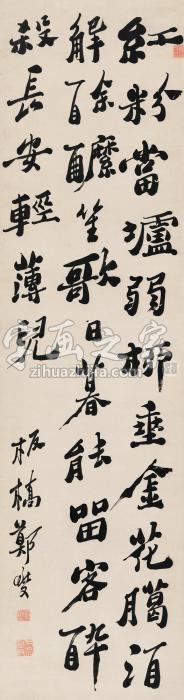 紅粉當壚弱柳垂金花臈酒
解酴醾笙歌日暮能留客醉
殺長安輕薄兒
板橋鄭燮
字画之家